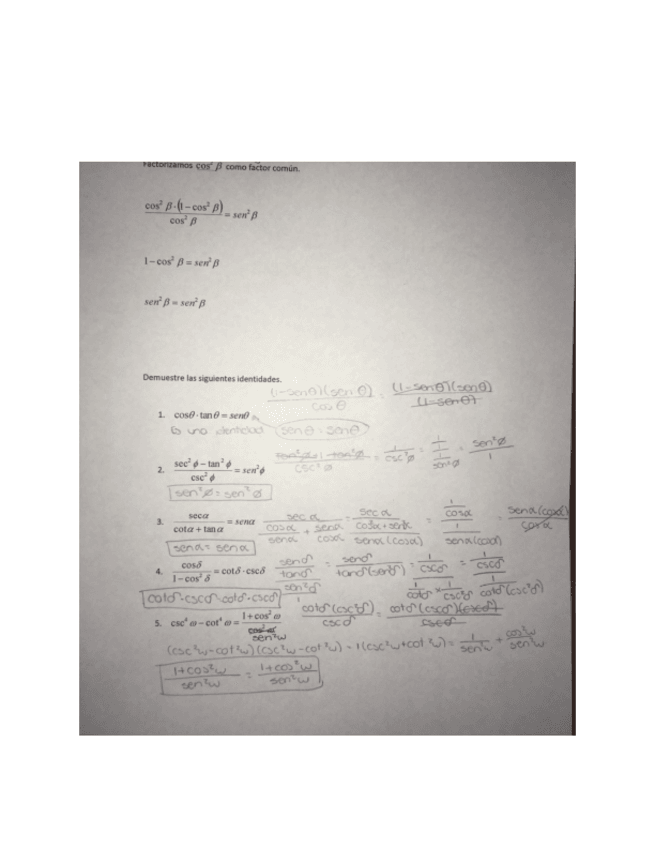 Factorizamos cos² β como factor común.
cos² β·(1−cos² β) / cos² β = sen² β
1−cos² β = sen² β
sen² β = sen² β
Demuestre las siguientes identidades.
(1-senθ)(senθ) / cosθ = (1-senθ)(senθ) / (1-senθ)
1. cosθ·tanθ = senθ
Es una identidad senθ = senθ
2. sec² ϕ − tan² ϕ / csc² ϕ = sen² ϕ
tan²ø+1-tan²ø / csc²ø = 1 / csc²ø = 1 / 1/sen²ø = sen²ø / 1
sen²ø = sen²ø
3. secα / cotα + tanα = senα
sec α / cosα/senα + senα/cosα = sec α / cosα+senα / senα(cosα) = 1/cosα / 1/senα(cosα) = senα(cosα) / cosα
senα = senα
4. cosδ / 1−cos² δ = cotδ·cscδ
senδ/tanδ / sen²δ = senδ / tanδ(sen²δ) = 1/cscδ / 1/cotδ × 1/csc²δ = 1/cscδ / 1/cotδ(csc²δ)
cotδ·cscδ=cotδ·cscδ
cotδ(csc²δ) / cscδ = cotδ(cscδ)(cscδ) / cscδ
5. csc⁴ ω − cot⁴ ω = 1+cos² ω / cos² ω
sen²ω
(csc²ω-cot²ω)(csc²ω+cot²ω) = 1(csc²ω+cot²ω) = 1/sen²ω + cos²ω/sen²ω
1+cos²ω / sen²ω = 1+cos²ω / sen²ω